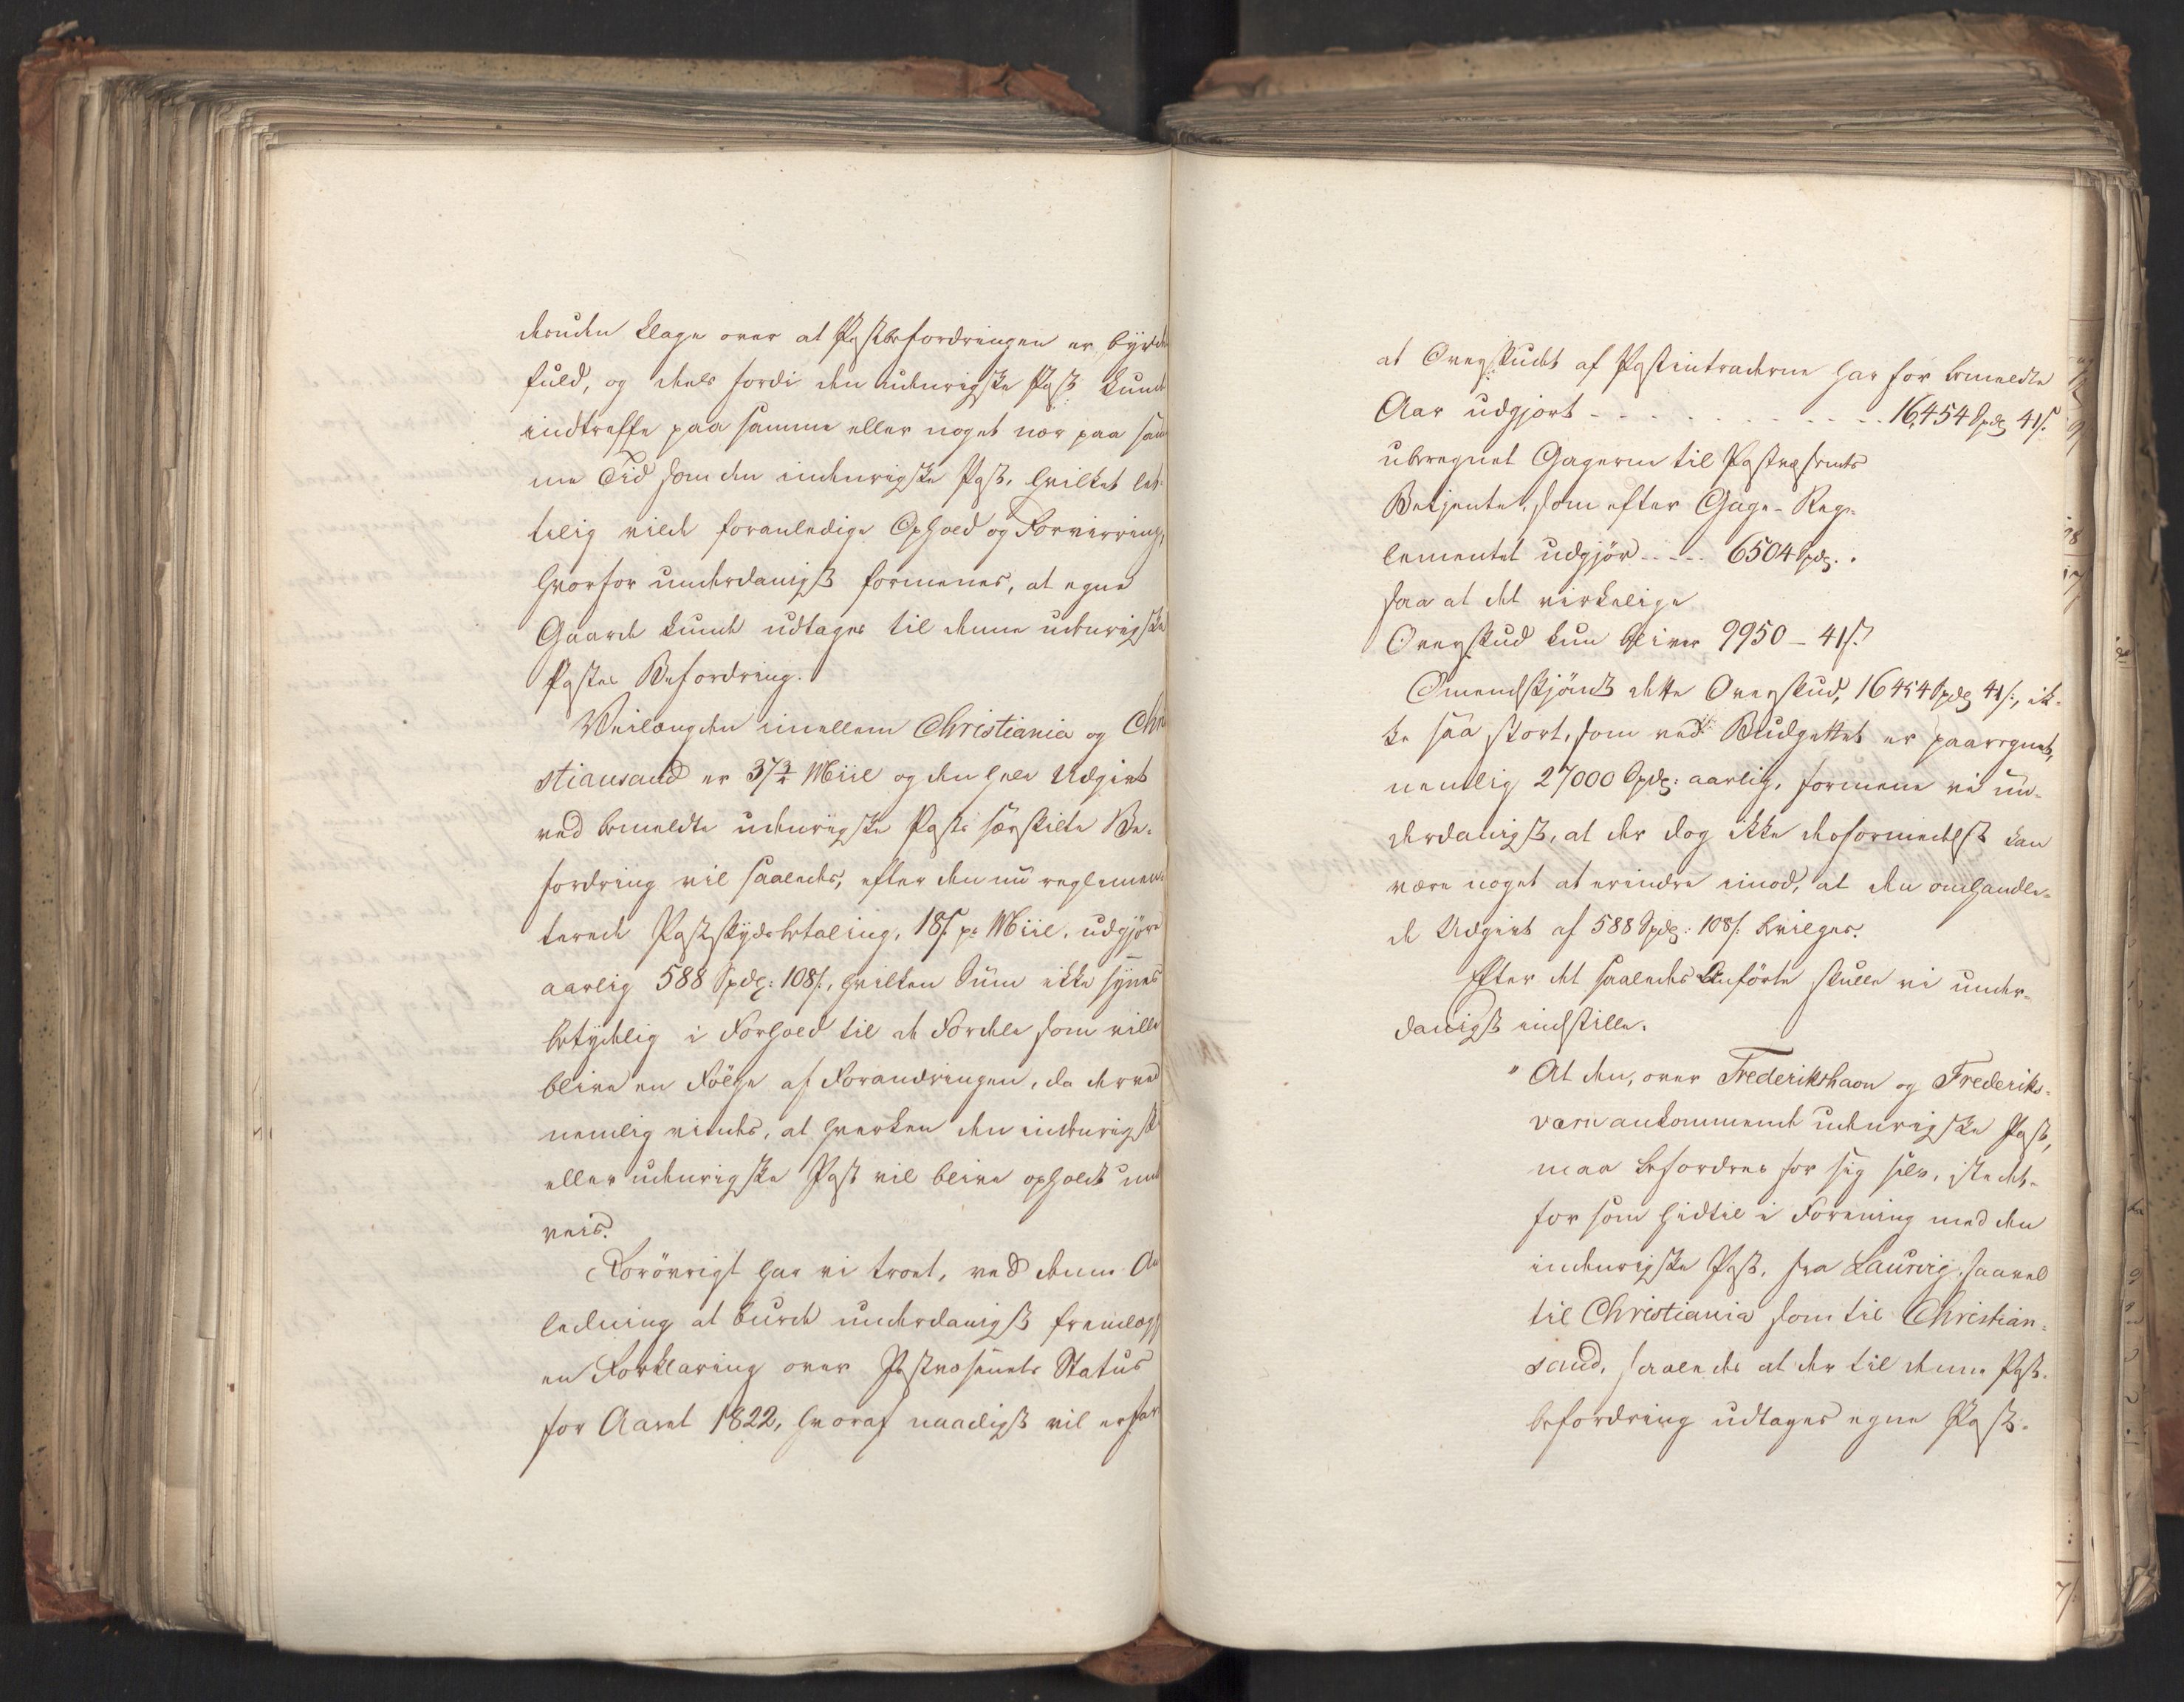 desuden klage over at Postbefordringen er byrde
fuld, og dels fordi den udenrigske Post kunde
indtreffe paa samme eller noget nær paa sam
me Tid som den indenrigske Post, hvilket let-
telig vilde foranledige Ophold og Forvirring,
hvorfor underdanigst formenes, at egne
Gaarde kunde udtages til denne udenrigske
Postes Befordring.
Veilængden imellem Christiania og Chri
stiansand er 37 3/4 Miil og den hele Udgivt
ved bemeldte udenrigske Posts særskilte Be-
fordring vil saaledes, efter den nu reglemen
terede Postskydsbetaling, 18 s. pr Miil, udgjøre
aarlig 588 Spd: 108 s., hvilken Sum ikke synes
betydelig i Forhold til de Fordele som ville
blive en Følge af Forandringen, da derved
nemlig vindes, at hverken den indenrigske
eller udenrigske Post vil blive opholdt und
veis.
Forøvrigt har vi troet, ved denne An
ledning at burde underdanigst fremlægge
en Forklaring over Postvæsenets Status
for Aaret 1822, hvoraf naadigst vil erfar
at Overskudet af Postintraderne har for bemeldte
Aar udgjort - - - - - - - - - - 16,454 Spd 41 s.
uberegnet Gagerne til Postvæsenets
Betjente, som efter Gage-Reg-
lementet udgjør - - - - - 6504 Spd. "
saa at det virkelige
Overskud kun bliver 9950 - 41 s.
Omendskjønt dette Overskud, 16454 Spd 41 s., ik-
ke saa stort, som ved Budgettet er paaregnet,
nemlig 27000 Spd: aarlig, formene vi un-
derdanigst, at der dog ikke desformedelst kan
være noget at erindre imod, at den omhandle-
de Udgivt af 588 Spd: 108 s. bevilges.
Efter det saaledes Anførte skulle vi under-
danigst indstille:
" At den, over Frederikshavn og Frederiks-
værn ankommende udenrigske Post,
maa befordres for sig selv, istedet-
for som hidtil i Forening med den
indenrigske Post, fra Laurvig, saavel
til Christiania som til Christian-
sand, saaledes at der til denne Post-
befordring udtages egne Post-